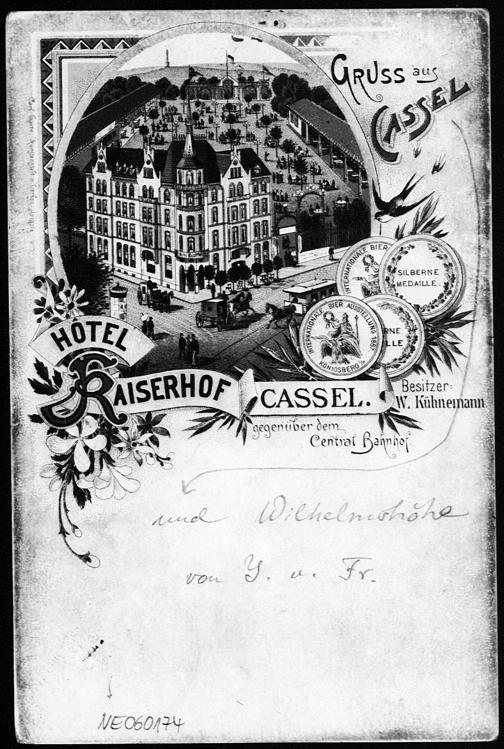 Gruss aus
Cassel
INTERNATIONALE BIER
SILBERNE
MEDAILLE.
INTERNATIONALE BIER AUSSTELLUNG 1887
KÖNIGSBERG
RNE
LLE
HÔTEL
KAISERHOF
CASSEL.
Besitzer:
W. Kühnemann
gegenüber dem
Central Bahnhof
und Wilhelmshöhe
von Y. u. Fr.
NE060174